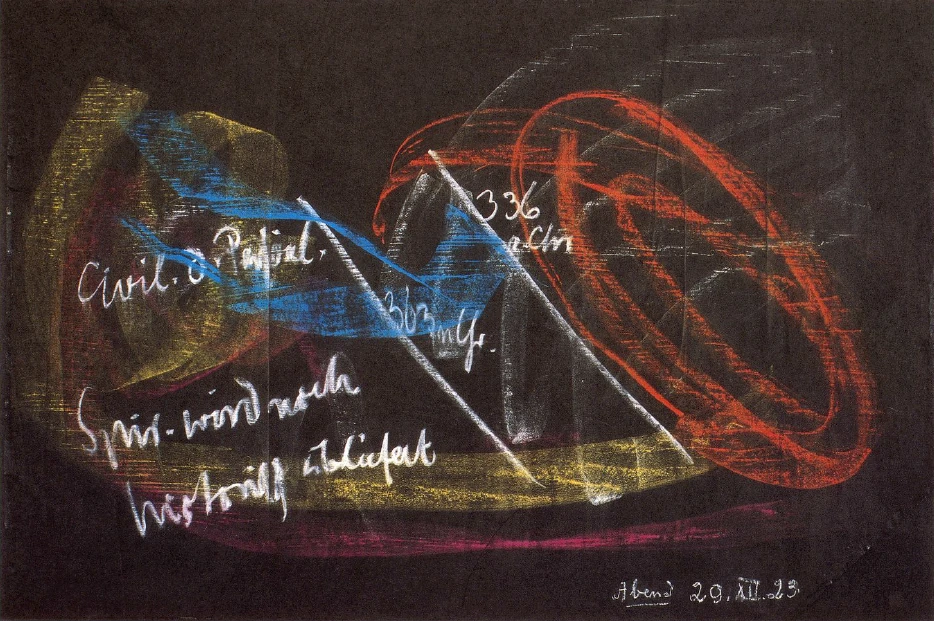 Civil. d.
336
a. Chr
363 n Chr.
Spir. wird noch
historisch überliefert
Abend 29. XII. 23